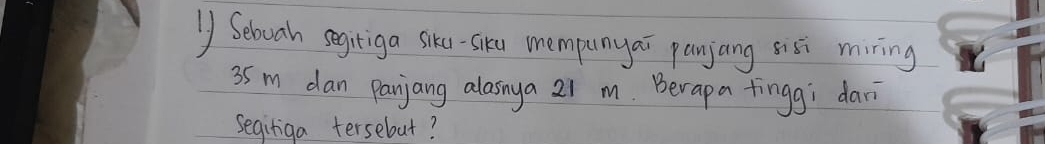 1) Sebuah segitiga siku-siku mempunyai panjang sisi miring
35 m dan panjang alasnya 21 m. Berapa tinggi dari
segitiga tersebut?